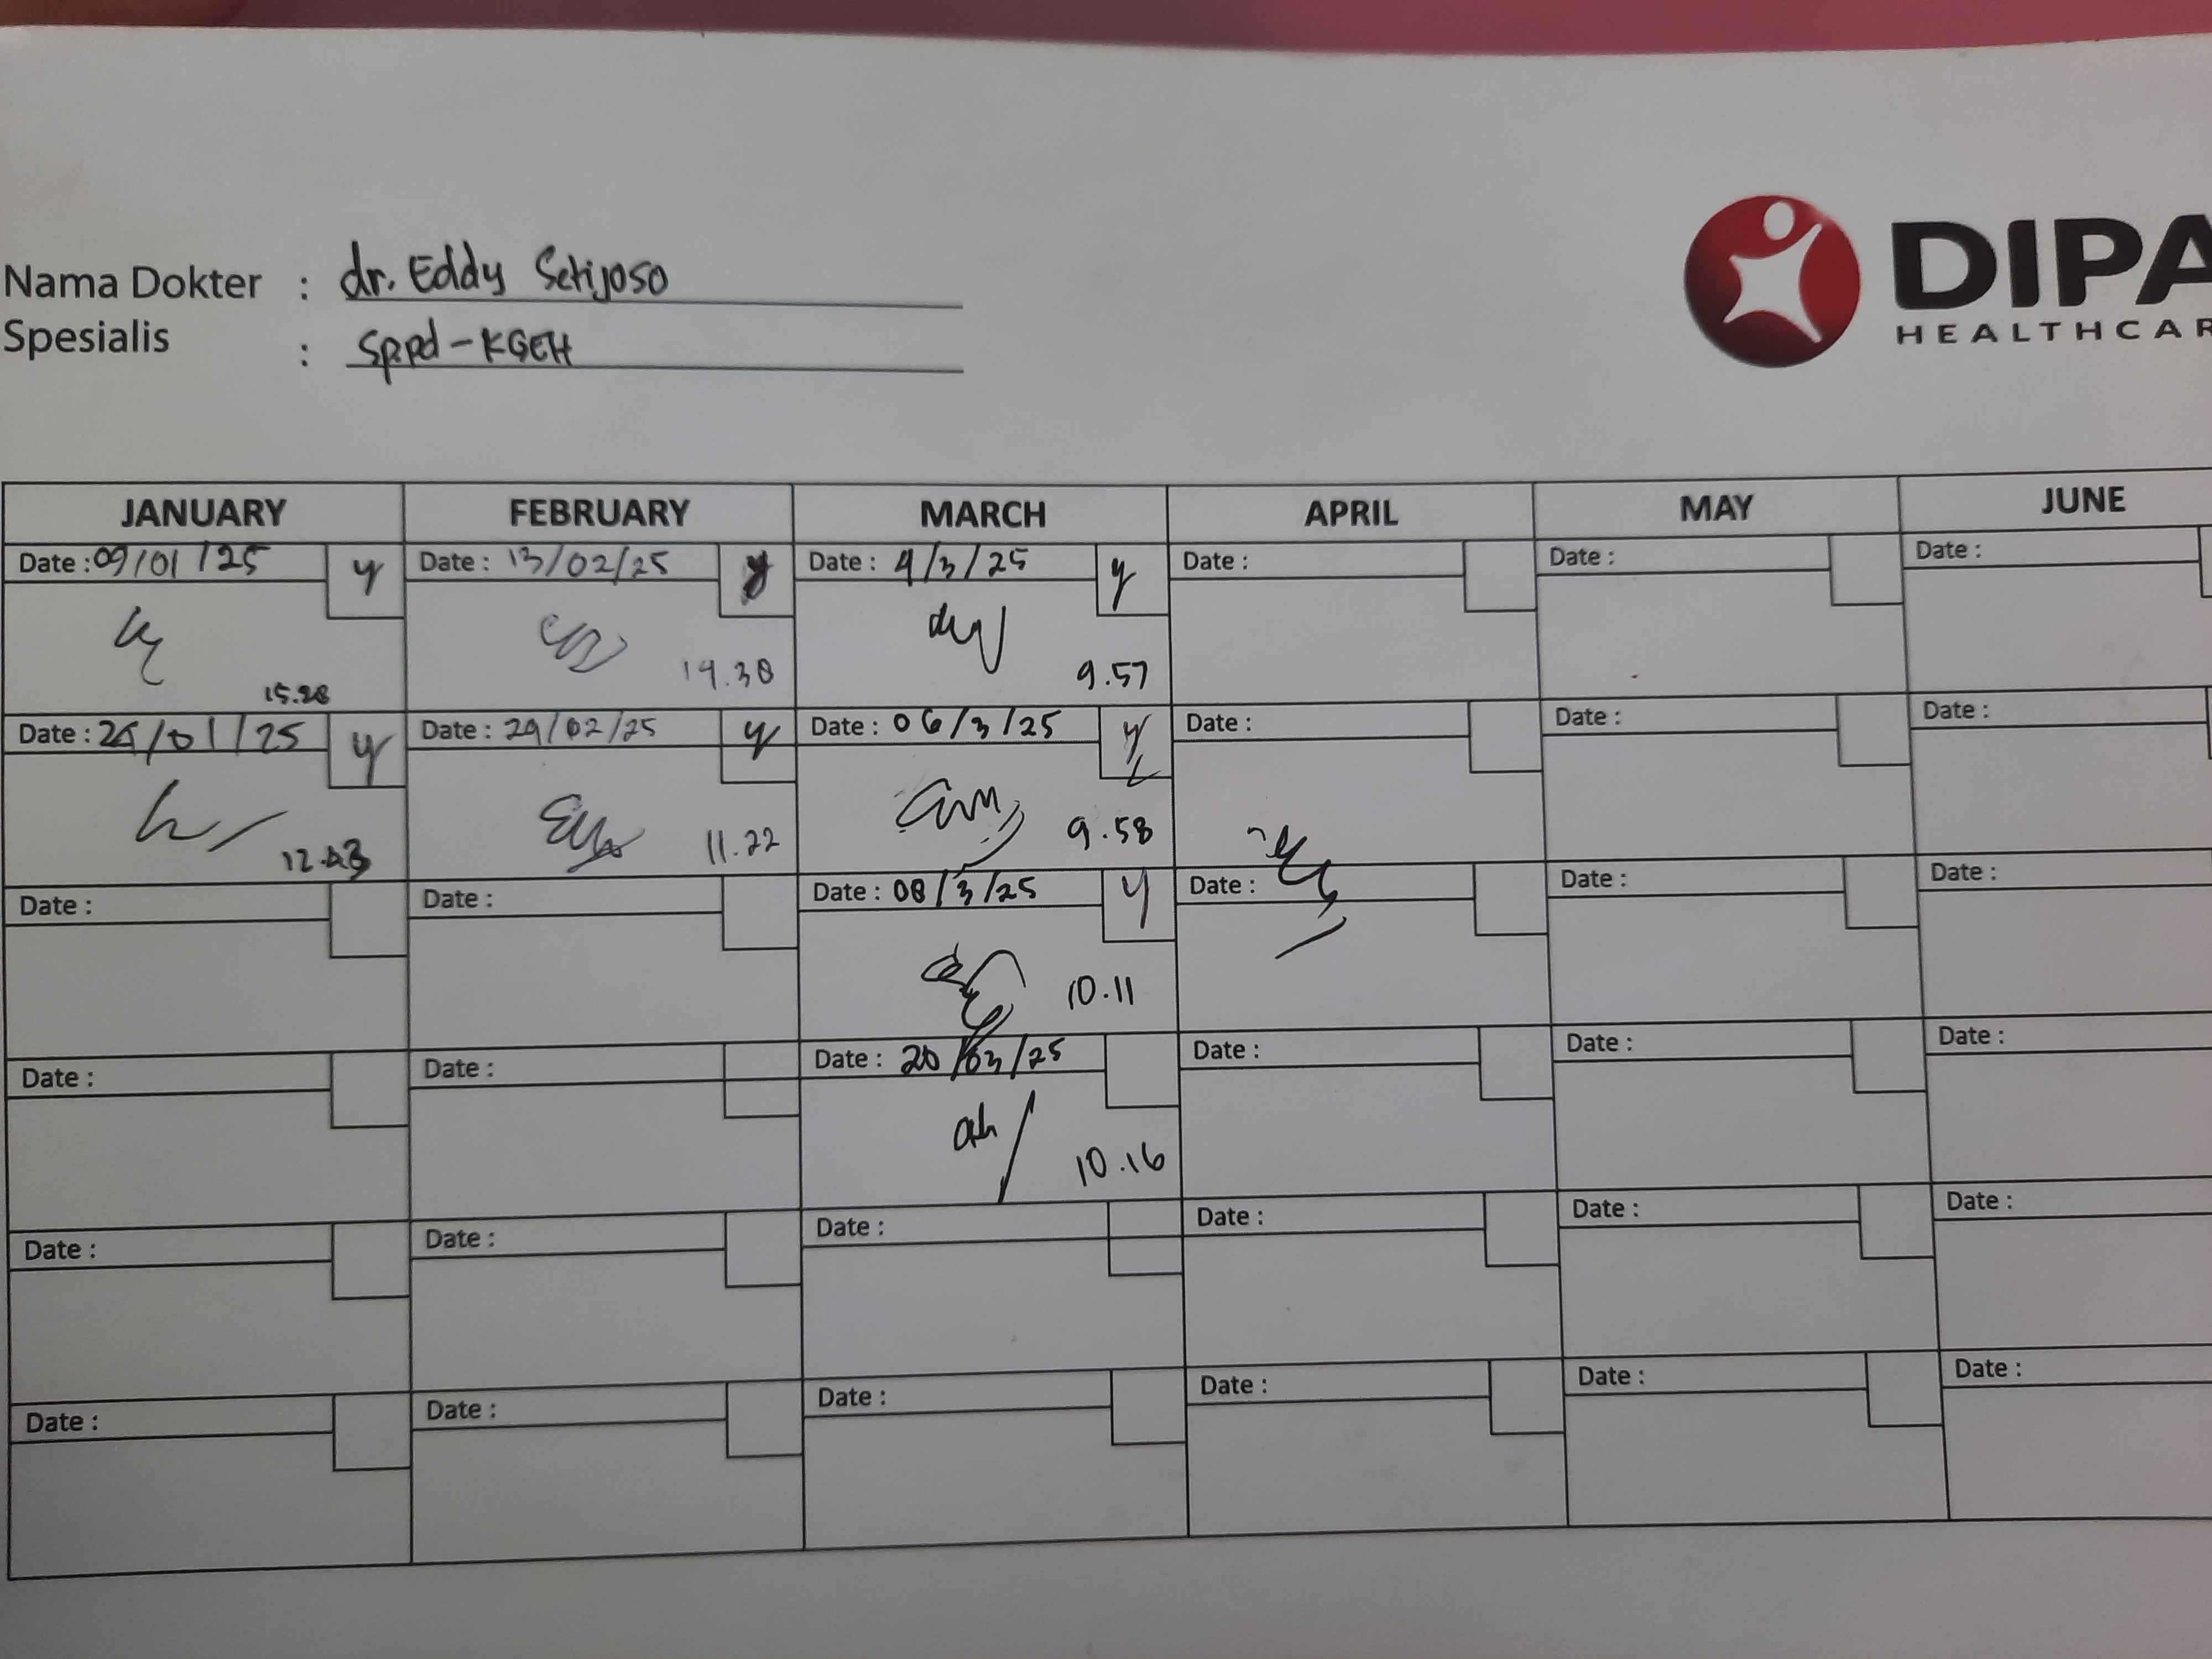 Nama Dokter : dr. Eddy Setijoso
Spesialis : Sp.pd-KGEH
DIPA
HEALTHCAR
JANUARY FEBRUARY MARCH APRIL MAY JUNE
Date : 09/01/25 y Date : 13/02/25 y Date : 4/3/25 y Date : Date : Date :
15.28 19.30 9.57
Date : 25/01/25 y Date : 29/02/25 y Date : 06/3/25 y Date : Date : Date :
11.22 9.58
Date : Date : Date : 08/3/25 y Date : Date : Date :
10.11
Date : Date : Date : 20/03/25 Date : Date : Date :
10.16
Date : Date : Date : Date : Date : Date :
Date : Date : Date : Date : Date : Date :